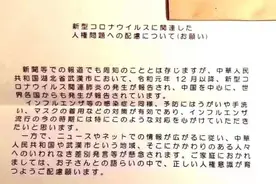 新型コロナウイルスに関連した
人権問題への配慮について(お願い)
新聞等での報道でも周知のことと存じますが、中華人民
共和国湖北省武漢市において、令和元年12月以降、新型コ
ロナウイルス関連肺炎の発生が報告され、中国を中心に、世
界各国からも発生が報告されています。
インフルエンザ等の感染症と同様、予防にはうがいや手洗
い、マスクの着用などの対策が有効であり、インフルエンザ
流行の今の時期には特にこのような対応を心がけていただき
たいと思います。
一方で、ニュースやネットでの情報が広がるに従い、中華
人民共和国や武漢市という地域、そこにかかわりのある人々
へのいわれなき差別発言等が懸念されます。ご家庭におかれ
ましては、お子さんとの語らいの中で、正しい人権意識が育
つようご配慮願います。